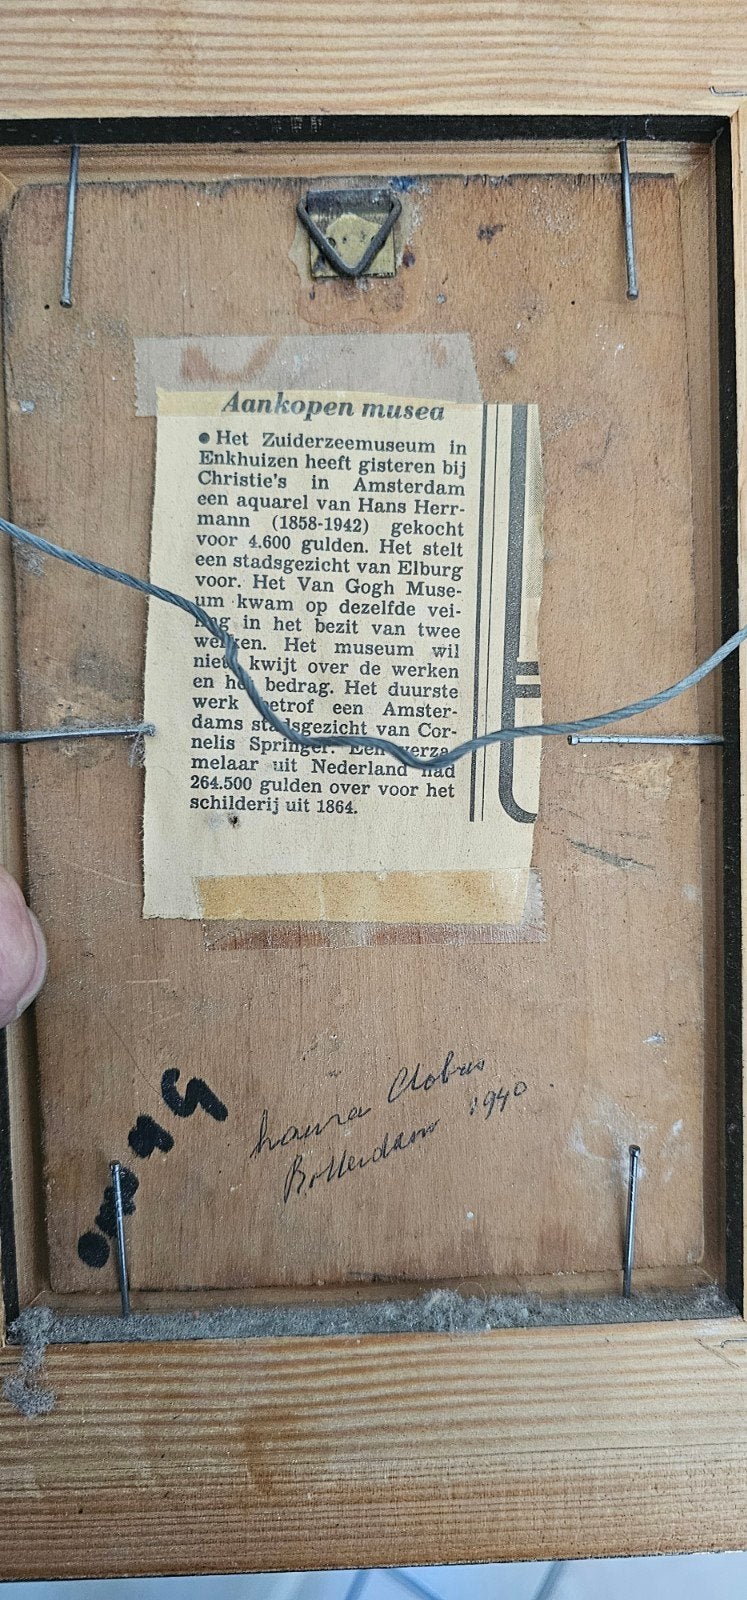 Aankopen musea
• Het Zuiderzeemuseum in
Enkhuizen heeft gisteren bij
Christie's in Amsterdam
een aquarel van Hans Herr-
mann (1858-1942) gekocht
voor 4.600 gulden. Het stelt
een stadsgezicht van Elburg
voor. Het Van Gogh Muse-
um kwam op dezelfde vei-
ling in het bezit van twee
werken. Het museum wil
niets kwijt over de werken
en het bedrag. Het duurste
werk betrof een Amster-
dams stadsgezicht van Cor-
nelis Springer. Een verza-
melaar uit Nederland had
264.500 gulden over voor het
schilderij uit 1864.
Rotterdam 1940